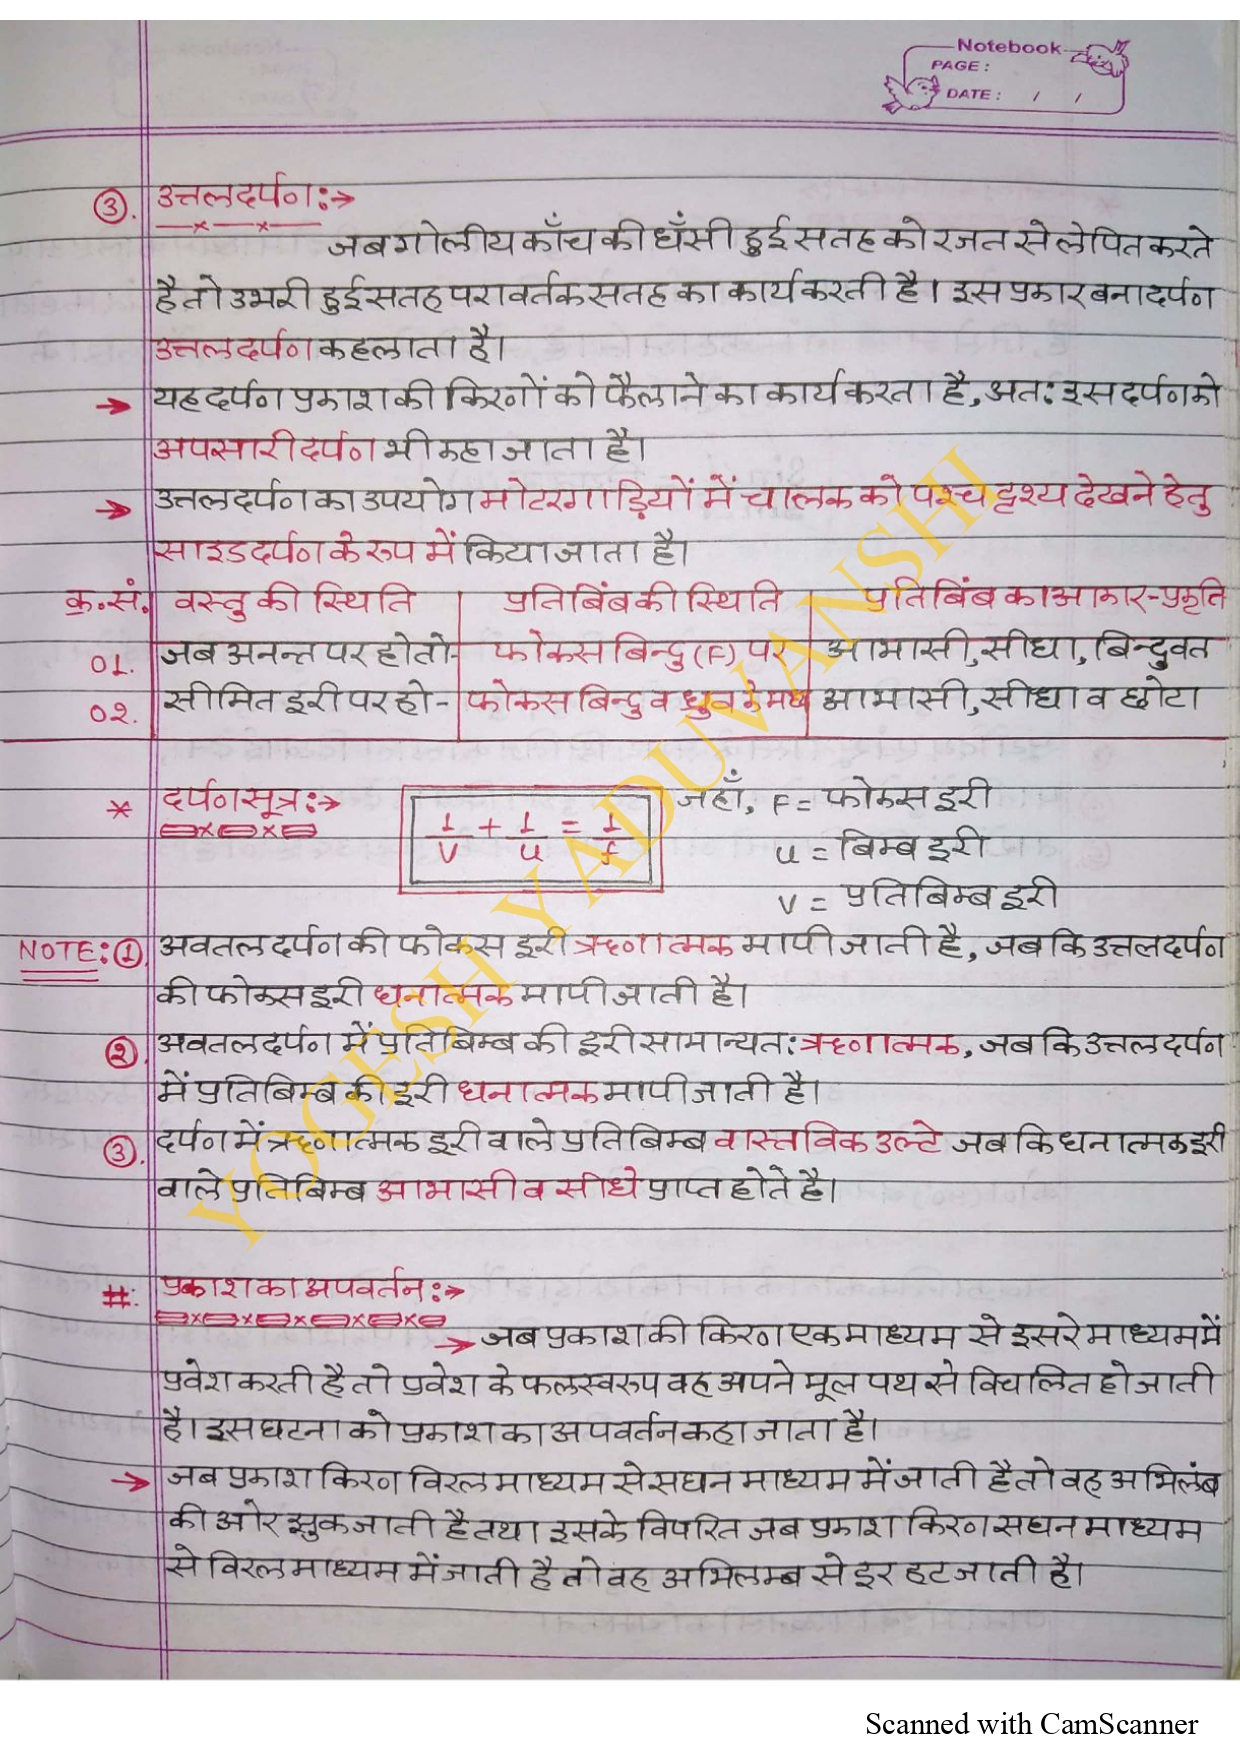 Notebook
PAGE :
DATE : / /
③. उत्तलदर्पण:→
जब गोलीय काँच की धँसी हुई सतह को रजत से लेपित करते
है, तो उभरी हुई सतह परावर्तक सतह का कार्य करती है। इस प्रकार बना दर्पण
उत्तलदर्पण कहलाता है।
→ यह दर्पण प्रकाश की किरणों को फैलाने का कार्य करता है, अत: इस दर्पण को
अपसारी दर्पण भी कहा जाता है।
→ उत्तलदर्पण का उपयोग मोटरगाड़ियों में चालक को पश्च दृश्य देखने हेतु
साइड दर्पण के रुप में किया जाता है।
क्र.सं. वस्तु की स्थिति प्रतिबिंब की स्थिति प्रतिबिंब का आकार-प्रकृति
01. जब अनन्त पर हो तो- फोकस बिन्दु (F) पर आभासी, सीधा, बिन्दुवत
02. सीमित दूरी पर हो- फोकस बिन्दु व ध्रुव के मध्य आभासी, सीधा व छोटा
* दर्पण सूत्र:→ 1/v + 1/u = 1/f जहाँ, F = फोकस दूरी
u = बिम्ब दूरी
v = प्रतिबिम्ब दूरी
NOTE: ① अवतल दर्पण की फोकस दूरी ऋणात्मक मापी जाती है, जबकि उत्तल दर्पण
की फोकस दूरी धनात्मक मापी जाती है।
②. अवतल दर्पण में प्रतिबिम्ब की दूरी सामान्यत: ऋणात्मक, जबकि उत्तल दर्पण
में प्रतिबिम्ब की दूरी धनात्मक मापी जाती है।
③. दर्पण में ऋणात्मक दूरी वाले प्रतिबिम्ब वास्तविक उल्टे जबकि धनात्मक दूरी
वाले प्रतिबिम्ब आभासी व सीधे प्राप्त होते है।
#. प्रकाश का अपवर्तन:→
→ जब प्रकाश की किरण एक माध्यम से दूसरे माध्यम में
प्रवेश करती है तो प्रवेश के फलस्वरुप वह अपने मूल पथ से विचलित हो जाती
है। इस घटना को प्रकाश का अपवर्तन कहा जाता है।
→ जब प्रकाश किरण विरल माध्यम से सघन माध्यम में जाती है तो वह अभिलंब
की ओर झुक जाती है तथा इसके विपरित जब प्रकाश किरण सघन माध्यम
से विरल माध्यम में जाती है तो वह अभिलम्ब से दूर हट जाती है।
YOGESH YADUVANSHI
Scanned with CamScanner